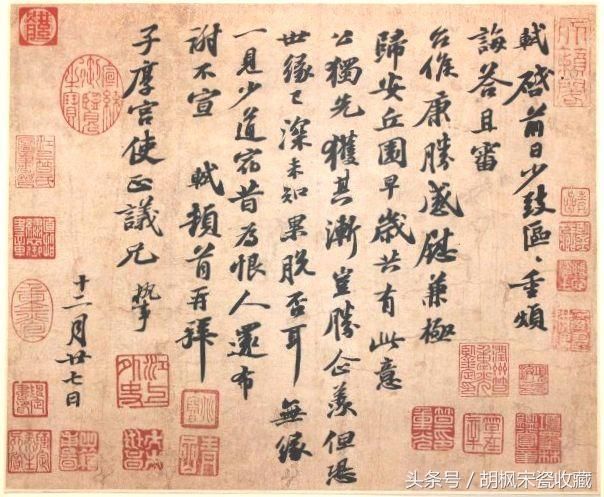 軾啓前日少致區〻重煩
誨荅且審
台候康勝感慰兼極
歸安丘園早歲共有此意
公獨先獲其漸豈勝企羨但恐
世緣已深未知果脫否耳無緣
一見少道宿昔為恨人還布
謝不宣 軾頓首再拜
子厚宮使正議兄執事
十二月廿七日
宣統御覽之寶
头条号 / 胡枫宋瓷收藏